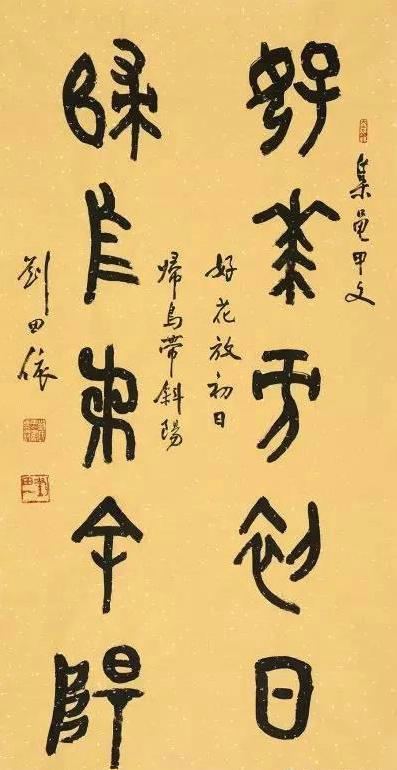 集龜甲文
好花放初日
好花放初日
歸鳥帶斜陽
歸鳥帶斜陽
劉田依